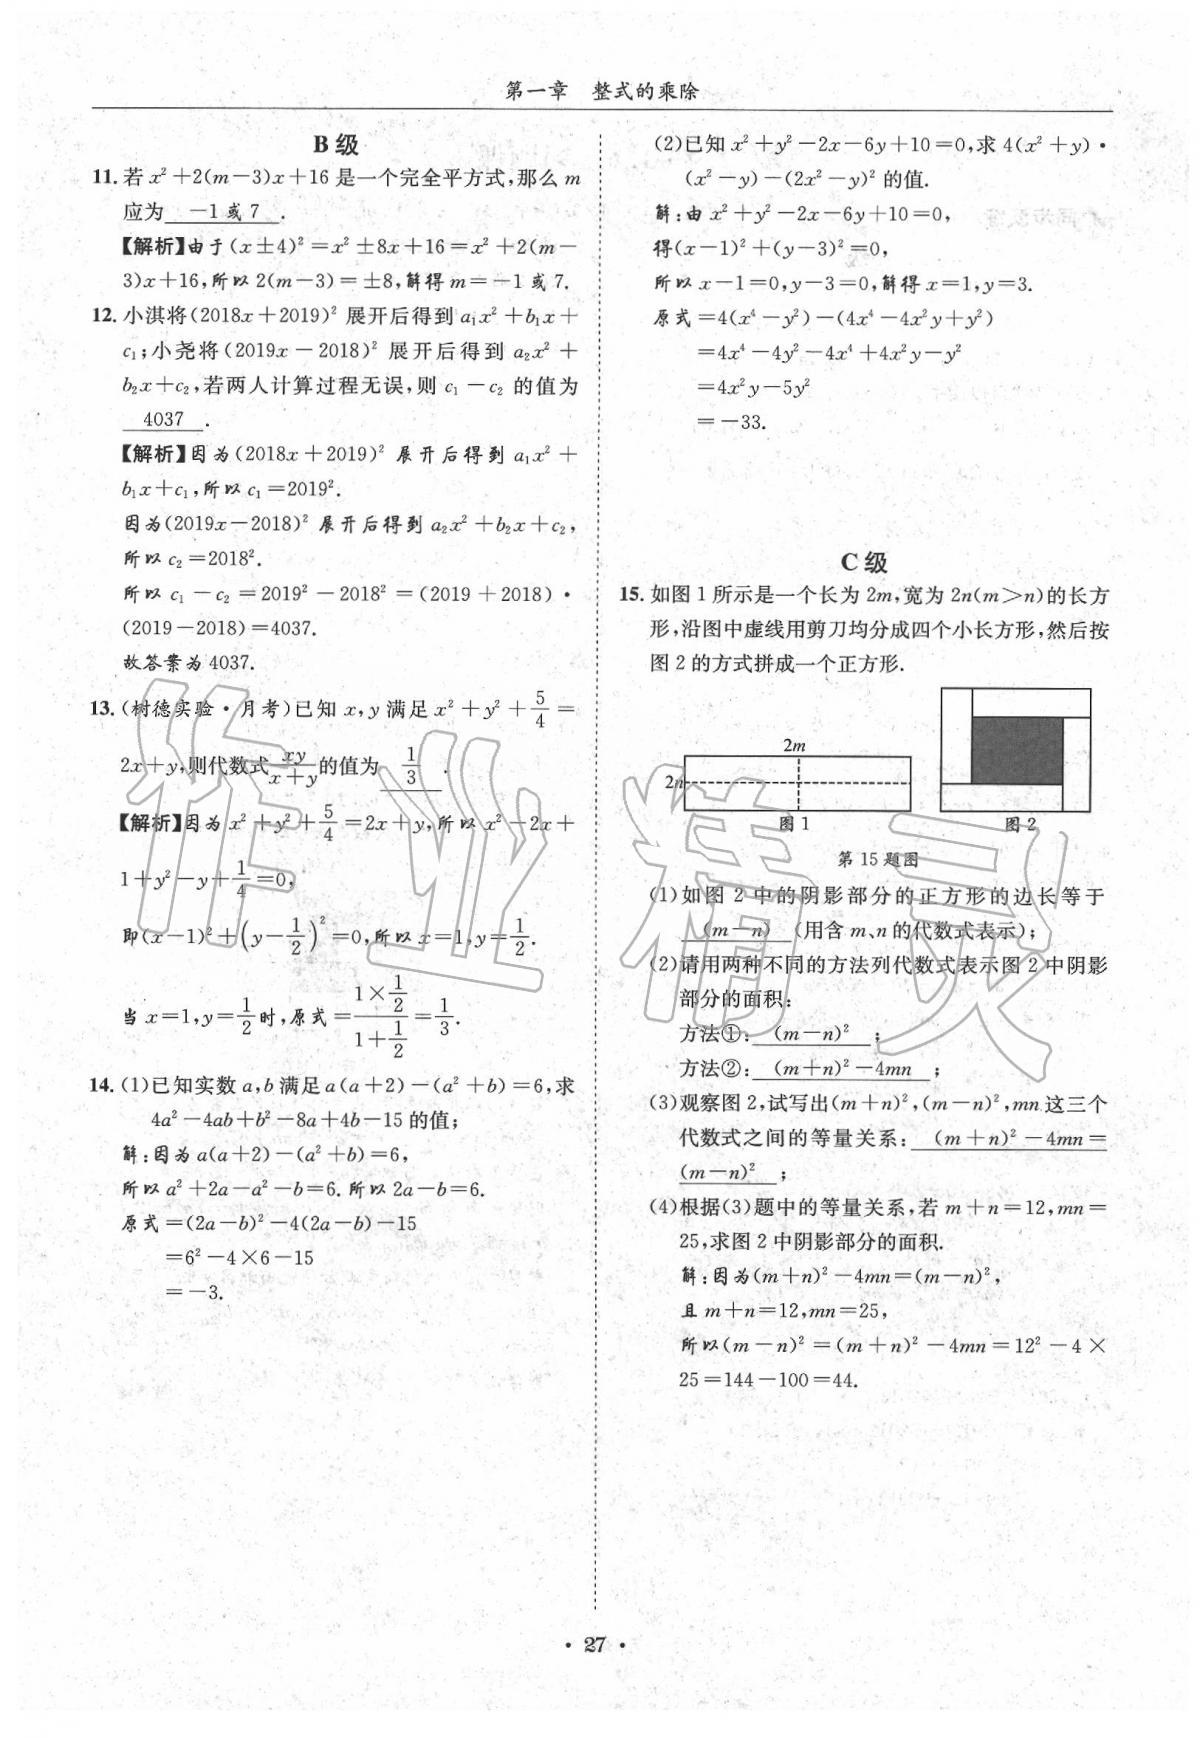 第一章 整式的乘除
B级
11. 若 x²+2(m-3)x+16 是一个完全平方式,那么 m
应为 -1或7 .
【解析】由于(x±4)²=x²±8x+16=x²+2(m-
3)x+16,所以2(m-3)=±8,解得m=-1或7.
12. 小淇将(2018x+2019)² 展开后得到 a₁x²+b₁x+
c₁;小尧将(2019x-2018)² 展开后得到 a₂x²+
b₂x+c₂,若两人计算过程无误,则 c₁-c₂ 的值为
4037 .
【解析】因为(2018x+2019)² 展开后得到 a₁x²+
b₁x+c₁,所以 c₁=2019².
因为(2019x-2018)² 展开后得到 a₂x²+b₂x+c₂,
所以 c₂=2018².
所以 c₁-c₂=2019²-2018²=(2019+2018)·
(2019-2018)=4037.
故答案为4037.
13. (树德实验·月考)已知 x,y 满足 x²+y²+5/4=
2x+y,则代数式 xy/(x+y) 的值为 1/3 .
【解析】因为 x²+y²+5/4=2x+y,所以 x²-2x+
1+y²-y+1/4=0,
即(x-1)²+(y-1/2)²=0,所以 x=1,y=1/2.
当 x=1,y=1/2 时,原式=(1×1/2)/(1+1/2)=1/3.
14. (1)已知实数 a,b 满足 a(a+2)-(a²+b)=6,求
4a²-4ab+b²-8a+4b-15 的值;
解:因为 a(a+2)-(a²+b)=6,
所以 a²+2a-a²-b=6. 所以 2a-b=6.
原式=(2a-b)²-4(2a-b)-15
=6²-4×6-15
=-3.
(2)已知 x²+y²-2x-6y+10=0,求 4(x²+y)·
(x²-y)-(2x²-y)² 的值.
解:由 x²+y²-2x-6y+10=0,
得(x-1)²+(y-3)²=0,
所以 x-1=0,y-3=0,解得 x=1,y=3.
原式=4(x⁴-y²)-(4x⁴-4x²y+y²)
=4x⁴-4y²-4x⁴+4x²y-y²
=4x²y-5y²
=-33.
C级
15. 如图1所示是一个长为 2m,宽为 2n(m>n)的长方
形,沿图中虚线用剪刀均分成四个小长方形,然后按
图2的方式拼成一个正方形.
2m
2n
图1 图2
第15题图
(1)如图2中的阴影部分的正方形的边长等于
(m-n) (用含 m、n 的代数式表示);
(2)请用两种不同的方法列代数式表示图2中阴影
部分的面积:
方法①: (m-n)² ;
方法②: (m+n)²-4mn ;
(3)观察图2,试写出(m+n)²,(m-n)²,mn 这三个
代数式之间的等量关系: (m+n)²-4mn=
(m-n)² ;
(4)根据(3)题中的等量关系,若 m+n=12,mn=
25,求图2中阴影部分的面积.
解:因为(m+n)²-4mn=(m-n)²,
且 m+n=12,mn=25,
所以(m-n)²=(m+n)²-4mn=12²-4×
25=144-100=44.
作业精灵
· 27 ·